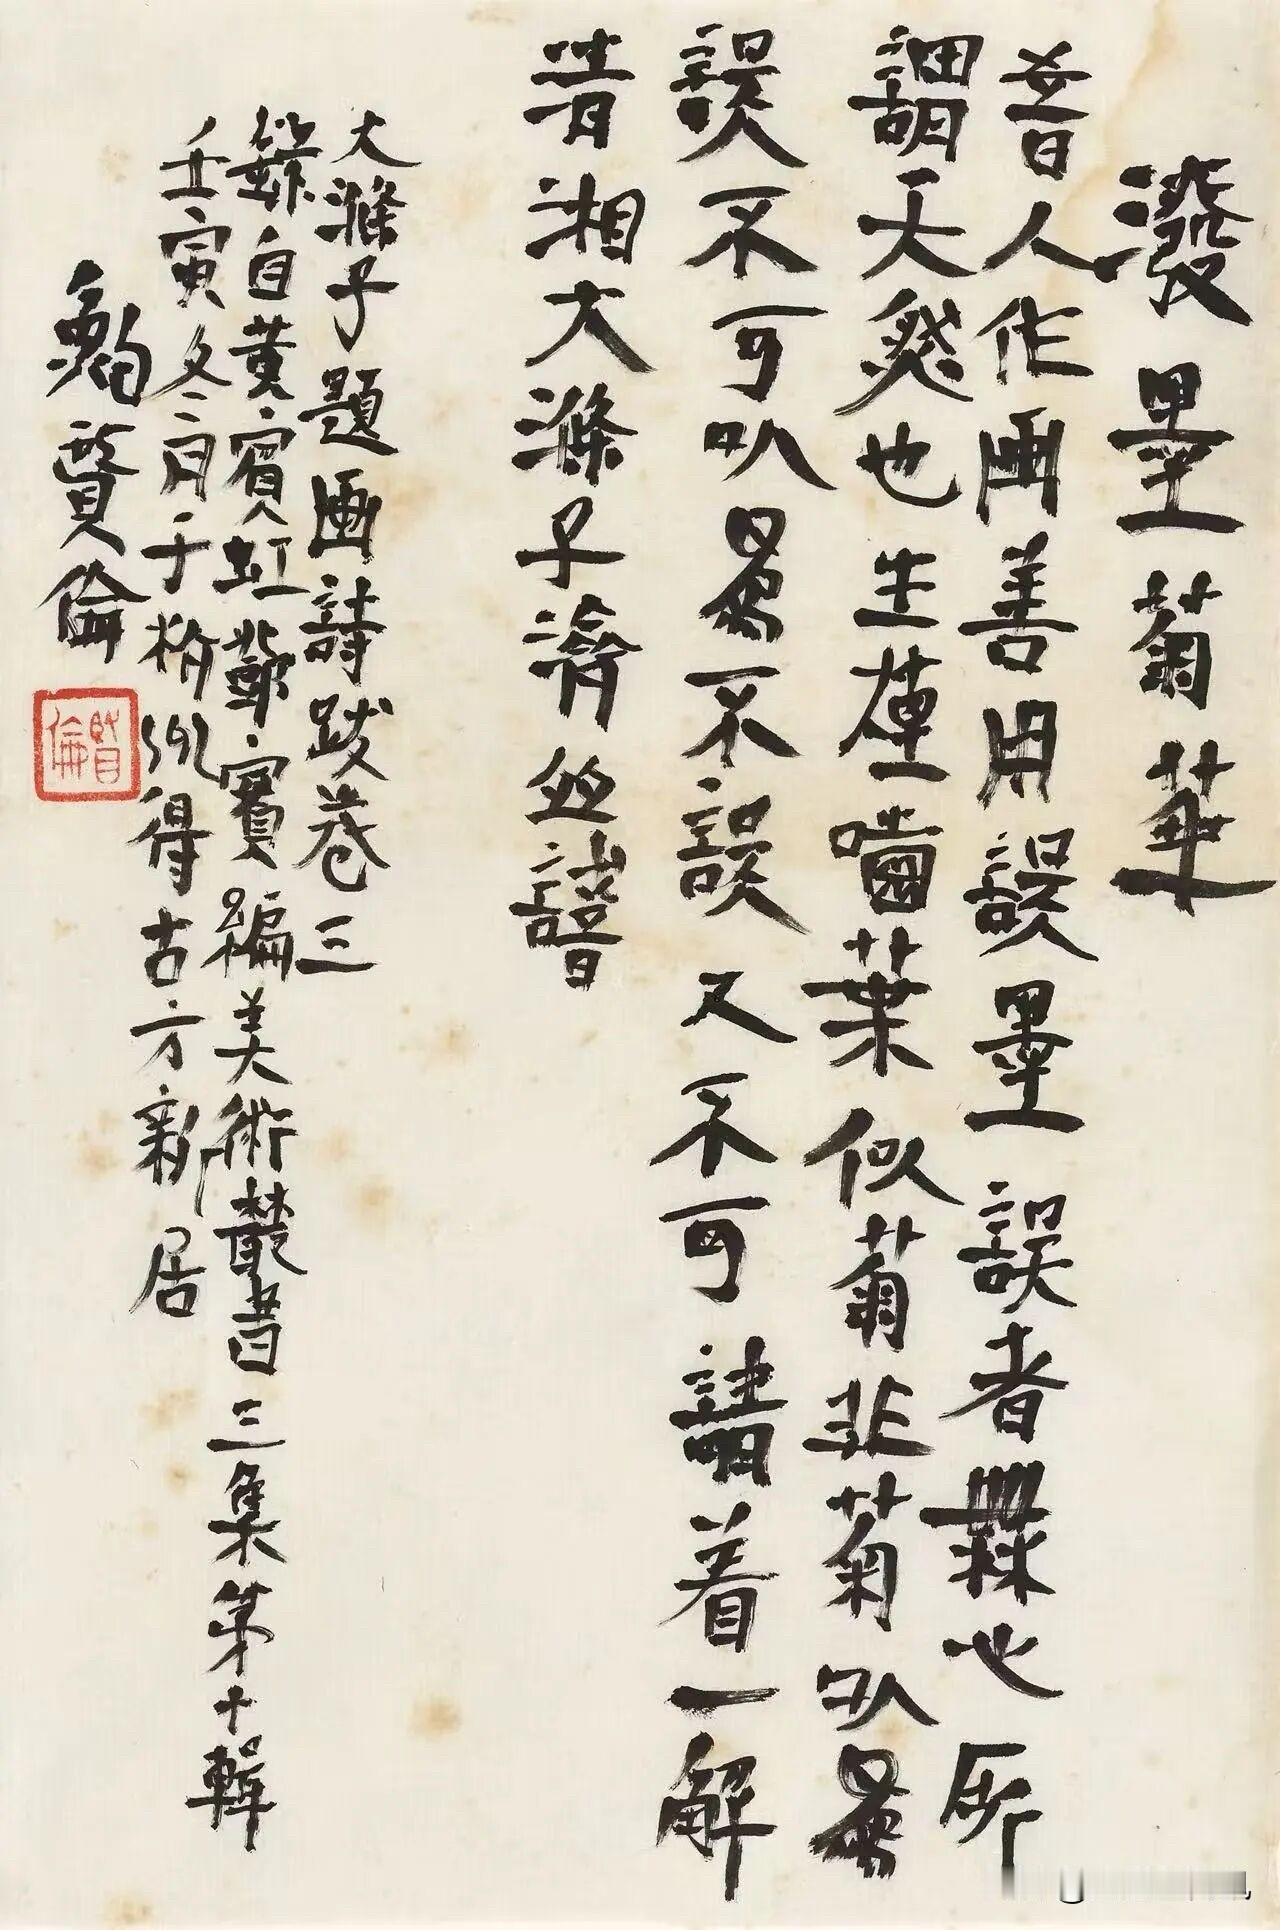 潑墨菊華
昔人作畫善用誤墨誤者無心所
謂天然也生蓮嚙葉似菊非菊以為
誤不可以為不誤又不可請着一解
昔湘大滌子濟並識
大滌子題畫詩跋卷三
錄自黃賓虹鄧實編美術叢書三集第十輯
壬寅冬二月于梅州得古方新居
賢倫
賢倫